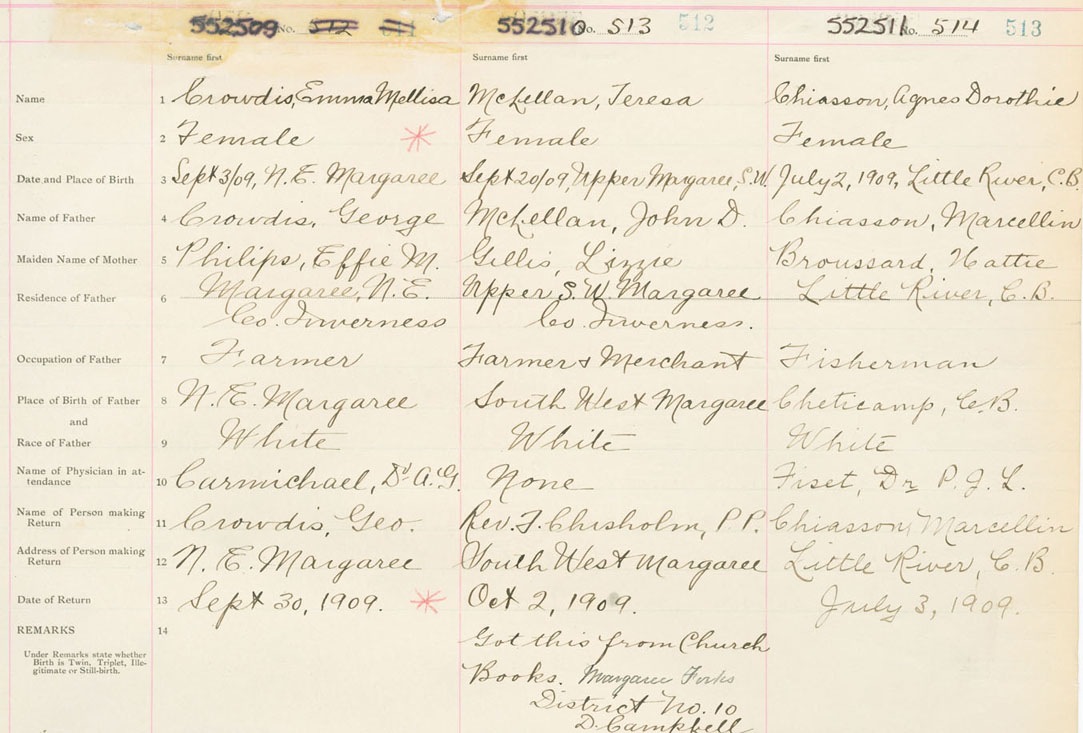 552509 No. 512 511 552510 No. 513 512 552511 No. 514 513
Surname first Surname first Surname first
Name 1 Crowdis, Emma Mellisa McLellan, Teresa Chiasson, Agnes Dorothie
Sex 2 Female Female Female
Date and Place of Birth 3 Sept 3/09, N.E. Margaree Sept 20/09, Upper Margaree, S.W. July 2, 1909, Little River, C.B.
Name of Father 4 Crowdis, George McLellan, John D. Chiasson, Marcellin
Maiden Name of Mother 5 Philips, Effie M. Gillis, Lizzie Broussard, Hattie
Residence of Father 6 Margaree, N.E. Upper S.W. Margaree Little River, C.B.
Co. Inverness Co. Inverness.
Occupation of Father 7 Farmer Farmer & Merchant Fisherman
Place of Birth of Father 8 N.E. Margaree South West Margaree Cheticamp, C.B.
and
Race of Father 9 White White White
Name of Physician in at-
tendance 10 Carmichael, Dr A.G. None Fiset, Dr P.J.L.
Name of Person making
Return 11 Crowdis, Geo. Rev. F. Chisholm, P.P. Chiasson, Marcellin
Address of Person making
Return 12 N.E. Margaree South West Margaree Little River, C.B.
Date of Return 13 Sept 30, 1909. Oct 2, 1909. July 3, 1909.
REMARKS 14
Got this from Church
Under Remarks state whether
Birth is Twin, Triplet, Ille-
gitimate or Still-birth.
Books. Margaree Forks
District No. 10
D. Campbell